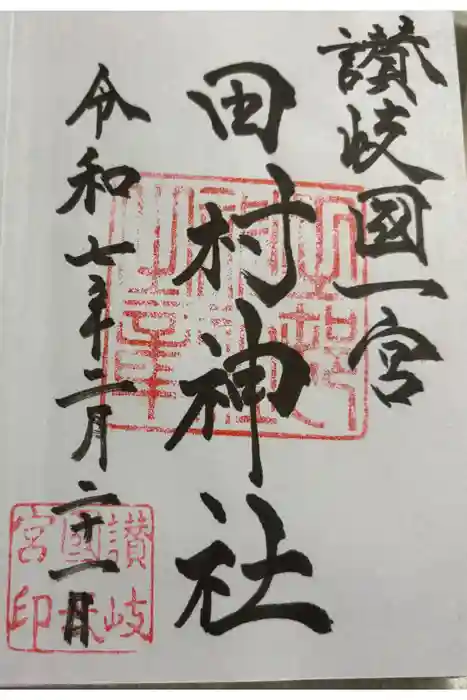 讃岐國一宮
田村神社
令和七年二月二十一日
讃岐國一宮印